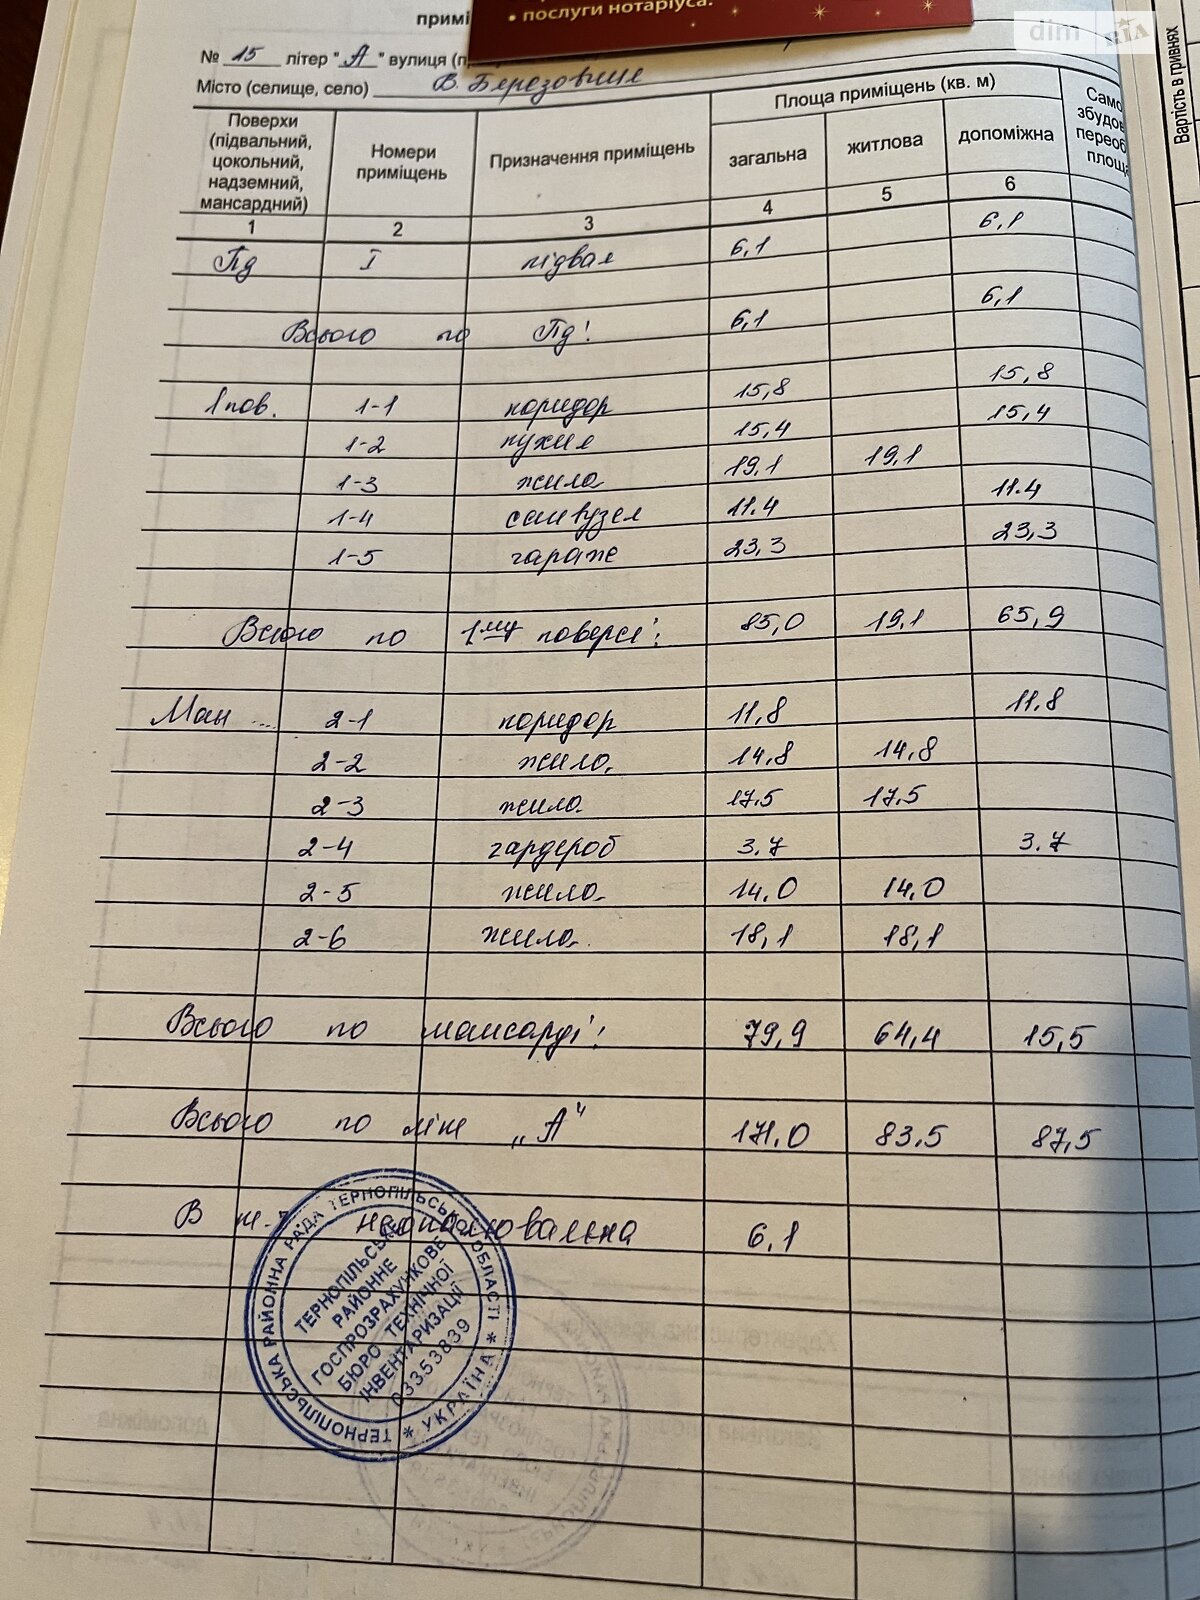 • послуги нотаріуса.
dim RIA
примі
№ 15 літер "А" вулиця (п
Місто (селище, село) В. Березовиця
Поверхи (підвальний, цокольний, надземний, мансардний) Номери приміщень Призначення приміщень Площа приміщень (кв. м) загальна житлова допоміжна Само збудо переоб площа
Вартість в гривнях
1 2 3 4 5 6
Пд I підвал 6,1 6,1
Всього по Пд: 6,1 6,1
1 пов. 1-1 коридор 15,8 15,8
1-2 кухня 15,4 15,4
1-3 жила 19,1 19,1
1-4 санвузел 11.4 11.4
1-5 гараж 23,3 23,3
Всього по 1му поверсі: 85,0 19,1 65,9
Ман ... 2-1 коридор 11,8 11.8
2-2 жила 14,8 14,8
2-3 жила 17,5 17,5
2-4 гардероб 3.7 3.7
2-5 жила 14,0 14,0
2-6 жила 18,1 18,1
Всього по мансарді: 79,9 64,4 15,5
Всього по літ „А" 171.0 83.5 87,5
В т.ч. неопалювальна 6.1
ТЕРНОПІЛЬСЬКА РАЙОННА РАДА ТЕРНОПІЛЬСЬКОЇ ОБЛАСТІ * УКРАЇНА *
ТЕРНОПІЛЬСЬКЕ
РАЙОННЕ
ГОСПРОЗРАХУНКОВЕ
БЮРО ТЕХНІЧНОЇ
ІНВЕНТАРИЗАЦІЇ
03353839